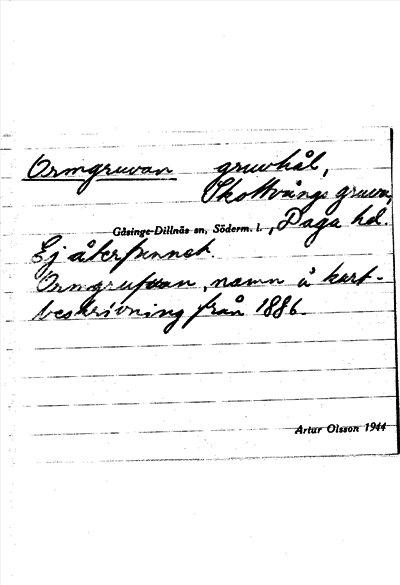 Ormgruvan gruvhål,
Skottvångs gruva,
Gåsinge-Dillnäs sn, Söderm. l., Daga hd.
Ej återfunnet.
Ormgrufvan, namn å kart-
beskrivning från 1886.
Artur Olsson 1944